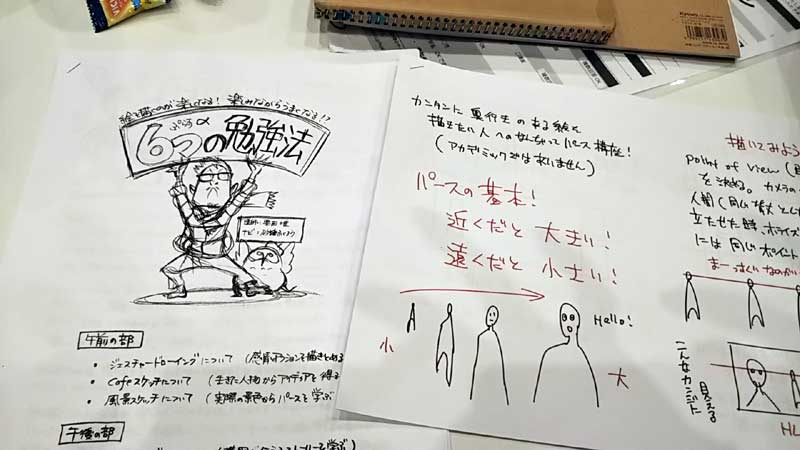 絵を描くのが楽しくなる! 楽しみながらうまくなる!?
ぷらすα
6つの勉強法
午前の部
・ジェスチャードローイングについて (感情、アクションを描きとめる
・Cafeスケッチについて (生きた人物からアイディアを得る
・風景スケッチについて (実際の景色からパースを学ぶ
午後の部
カンタンに奥行きのある絵を
描きたい人へのなんちゃってパース講座!
(アカデミックではないません)
パースの基本!
近くだと 大きい!
遠くだと 小さい!
小
Hello!
大
描いてみよう
Point of View (
を決める。カメラの
人間(同じ背丈としt
立たせた時、ホライズ
には同じポイント
まーっすぐいなのがい
こんなカンジに
見える
HL